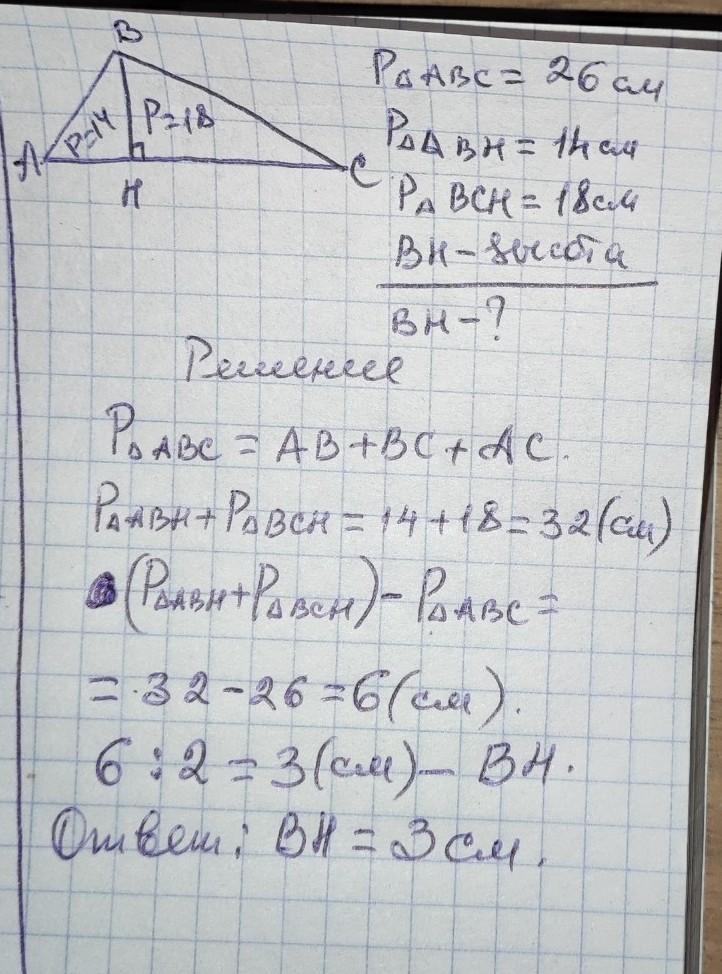 B
P=14 P=18
A C
H
P△ABC = 26 см
P△ABH = 14 см
P△BCH = 18 см
BH - высота
BH - ?
Решение
P△ABC = AB + BC + AC.
P△ABH + P△BCH = 14 + 18 = 32 (см)
(P△ABH + P△BCH) - P△ABC =
= 32 - 26 = 6 (см).
6 : 2 = 3 (см) - BH.
Ответ: BH = 3 см.